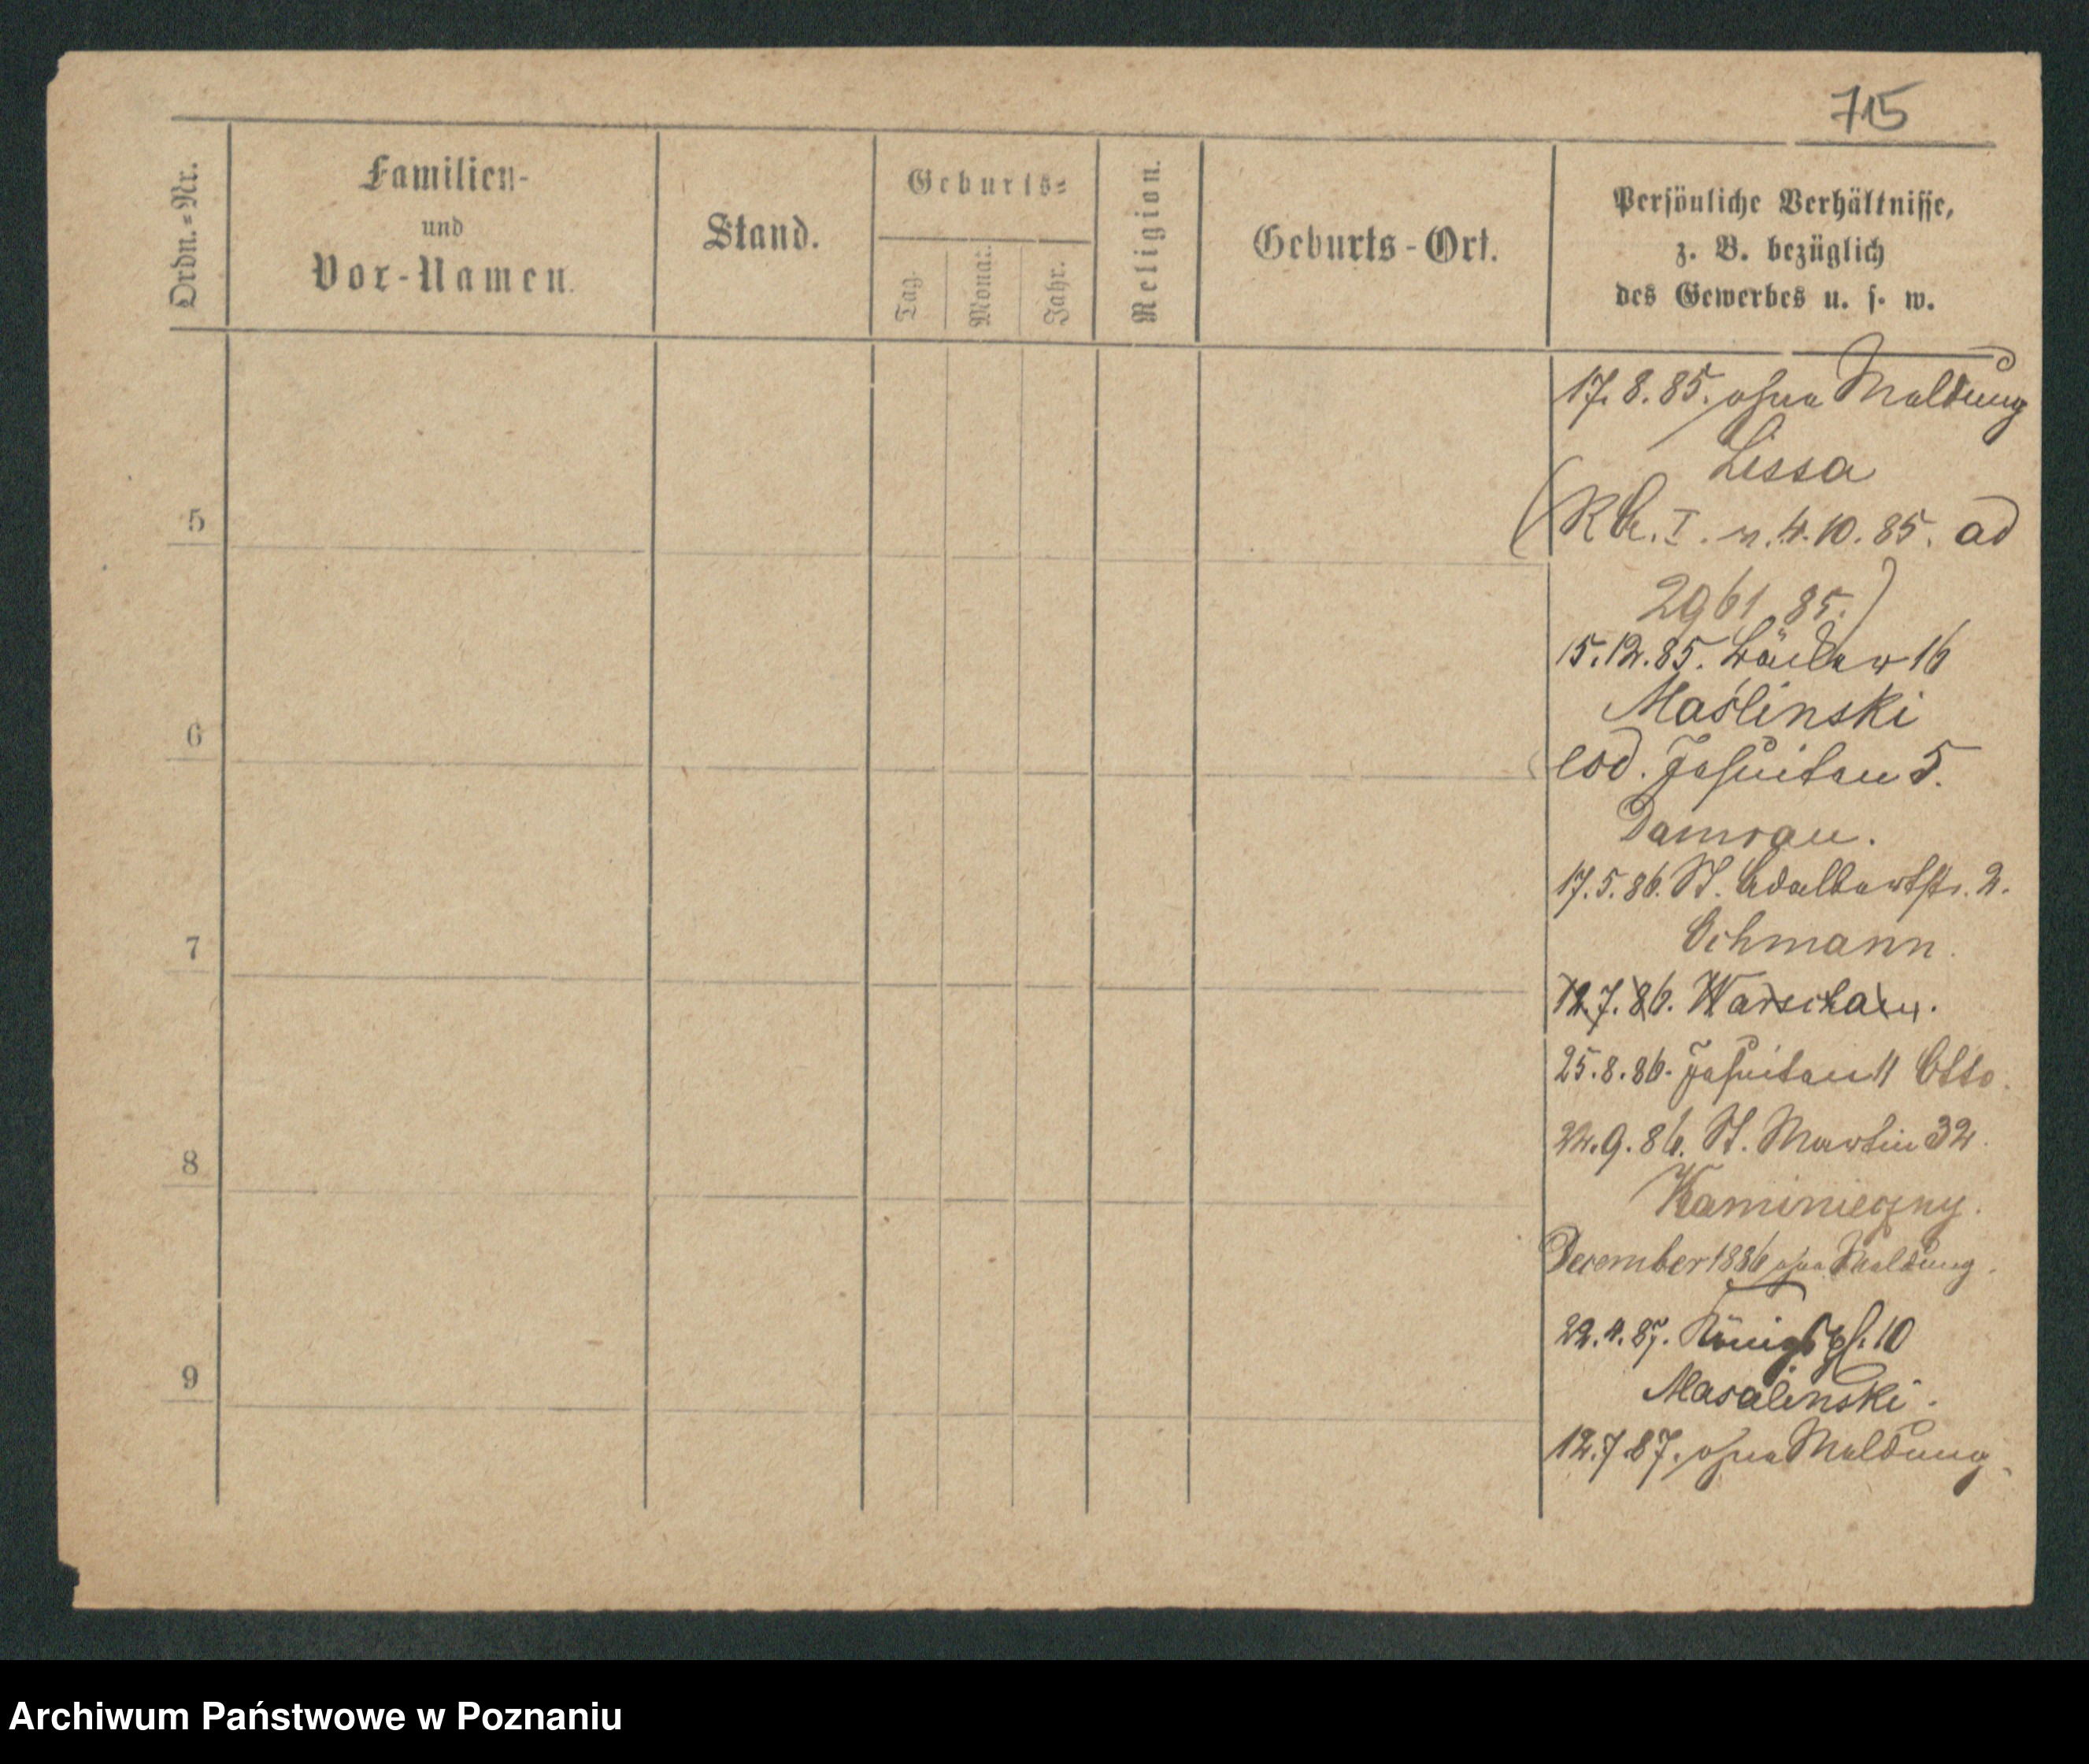 715
Ordn.-Nr.
Familien-
und
Vor-Namen.
Stand.
Geburts-
Tag.
Monat.
Jahr.
Religion.
Geburts-Ort.
Persönliche Verhältnisse,
z. B. bezüglich
des Gewerbes u. s. w.
17.8.85. ohne Meldung
Lissa
5
I. 4.10.85. ad
2961.85.)
15.12.85. 16
6
Maślinski
eod. Jesuiten 5.
Damrau.
17.5.86. St. Adalbertstr. 2.
7
Ochmann.
12.7.86. Warschau.
25.8.86. Jesuiten 11 Otto.
8
24.9.86. St. Martin 32.
Kaminieczny.
December 1886 ohne Meldung.
22.4.87. Königspl. 10
9
Masalinski.
12.7.87. ohne Meldung.
Archiwum Państwowe w Poznaniu